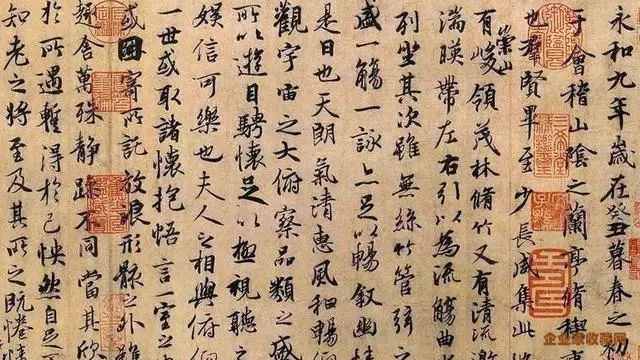 永和九年歲在癸丑暮春之初
于會稽山陰之蘭亭脩稧
也羣賢畢至少長咸集此
崇山
有峻領茂林脩竹又有清流激
湍暎帶左右引以為流觴曲
列坐其次雖無絲竹管弦之
盛一觴一詠亦足以暢敘幽情
是日也天朗氣清惠風和暢
觀宇宙之大俯察品類之盛
所以遊目騁懷足以極視聽之
娛信可樂也夫人之相與俯仰
一世或取諸懷抱悟言一室之
或因寄所託放浪形骸之外雖
趣舍萬殊靜躁不同當其欣
於所遇暫得於己怏然自足
知老之將至及其所之既惓情
企业家收藏网